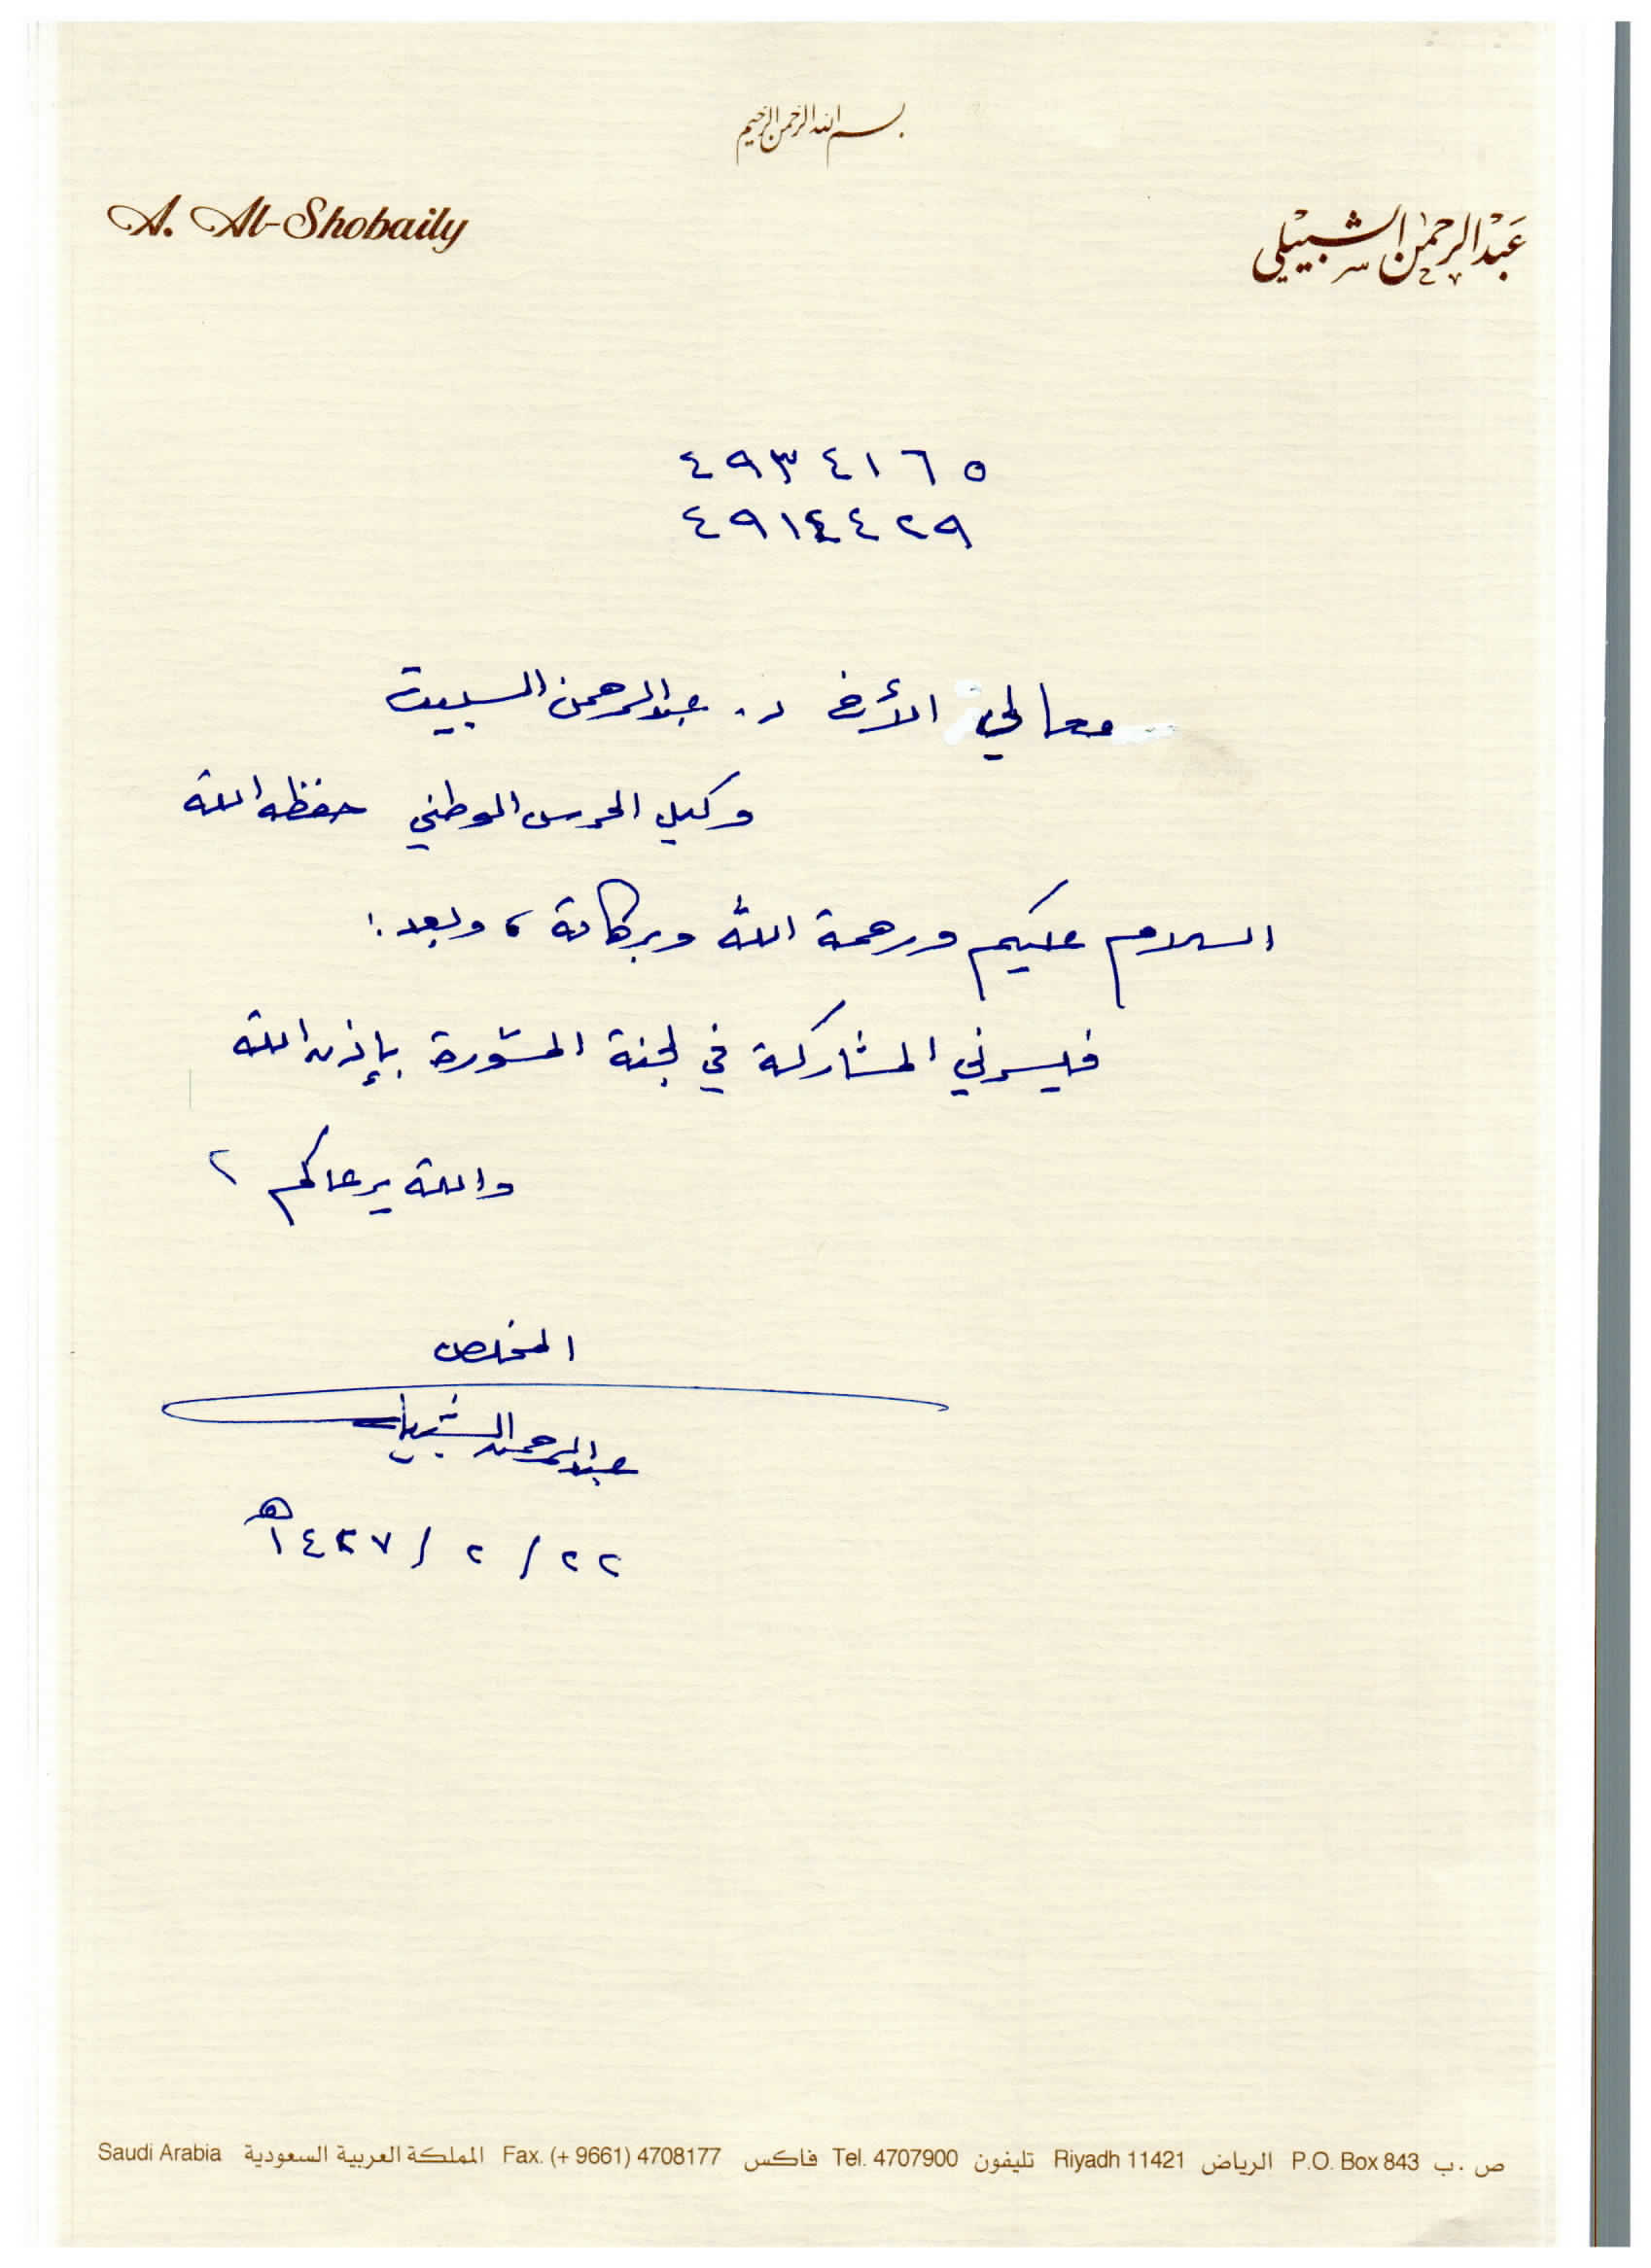 بسم الله الرحمن الرحيم
A. Al-Shobaily
عَبْدالرحمٰن الشبيْلي
٤٩٣٤١٦٥
٤٩١٤٤٢٩
معالي الأخ د. عبدالرحمن السبيت
وكيل الحرس الوطني حفظه الله
السلام عليكم ورحمة الله وبركاته، وبعد:
فيسرني المشاركة في لجنة المشورة بإذن الله
والله يرعاكم
المخلص
عبدالرحمن الشبيلي
٢٢ / ٢ / ١٤٢٧هـ
ص.ب P.O. Box 843 الرياض Riyadh 11421 تليفون Tel. 4707900 فاكس Fax. (+ 9661) 4708177 المملكة العربية السعودية Saudi Arabia